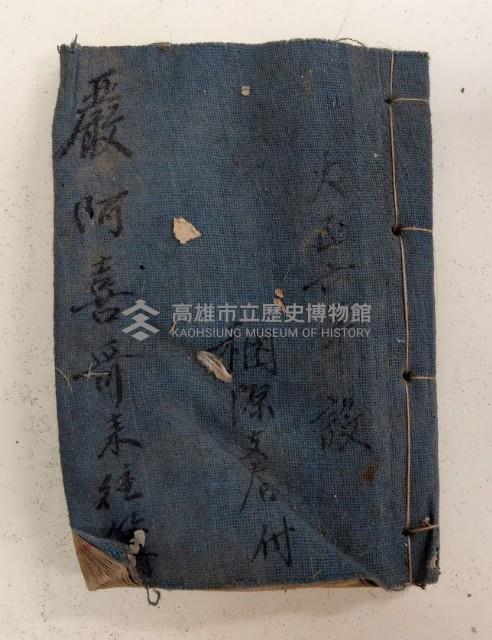 大正六年設
個際支店付
嚴阿喜哥來往簿
高雄市立歷史博物館
KAOHSIUNG MUSEUM OF HISTORY